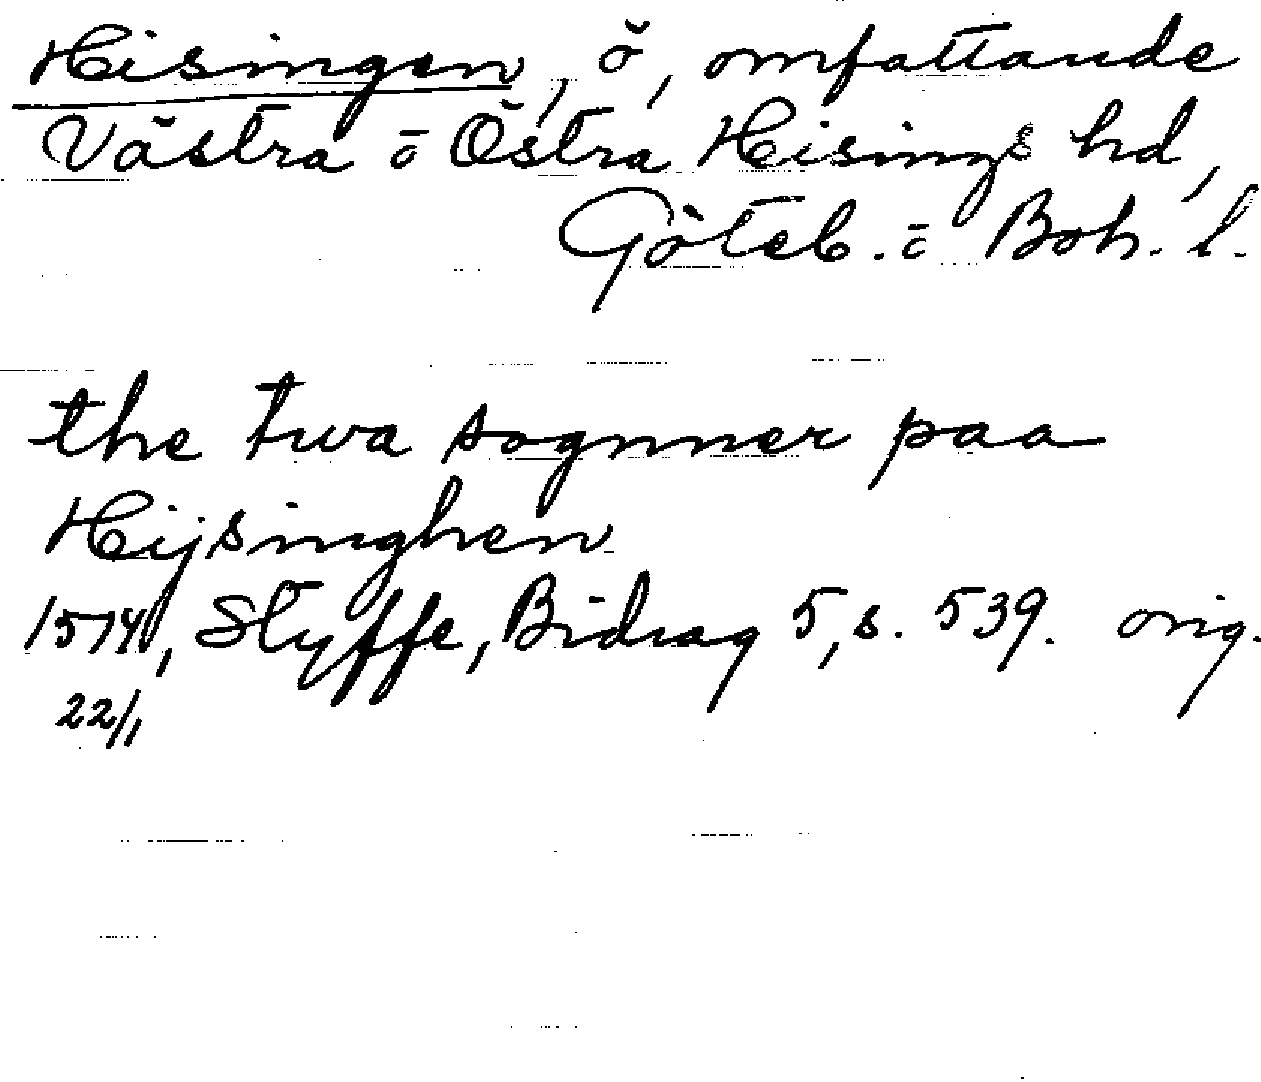 Hisingen, ö, omfattande
Västra o Östra Hisings hd,
Göteb. o Boh. l.
the twa sognner paa
Hijsinghen
1514, Styffe, Bidrag 5, s. 539. orig.
22/1